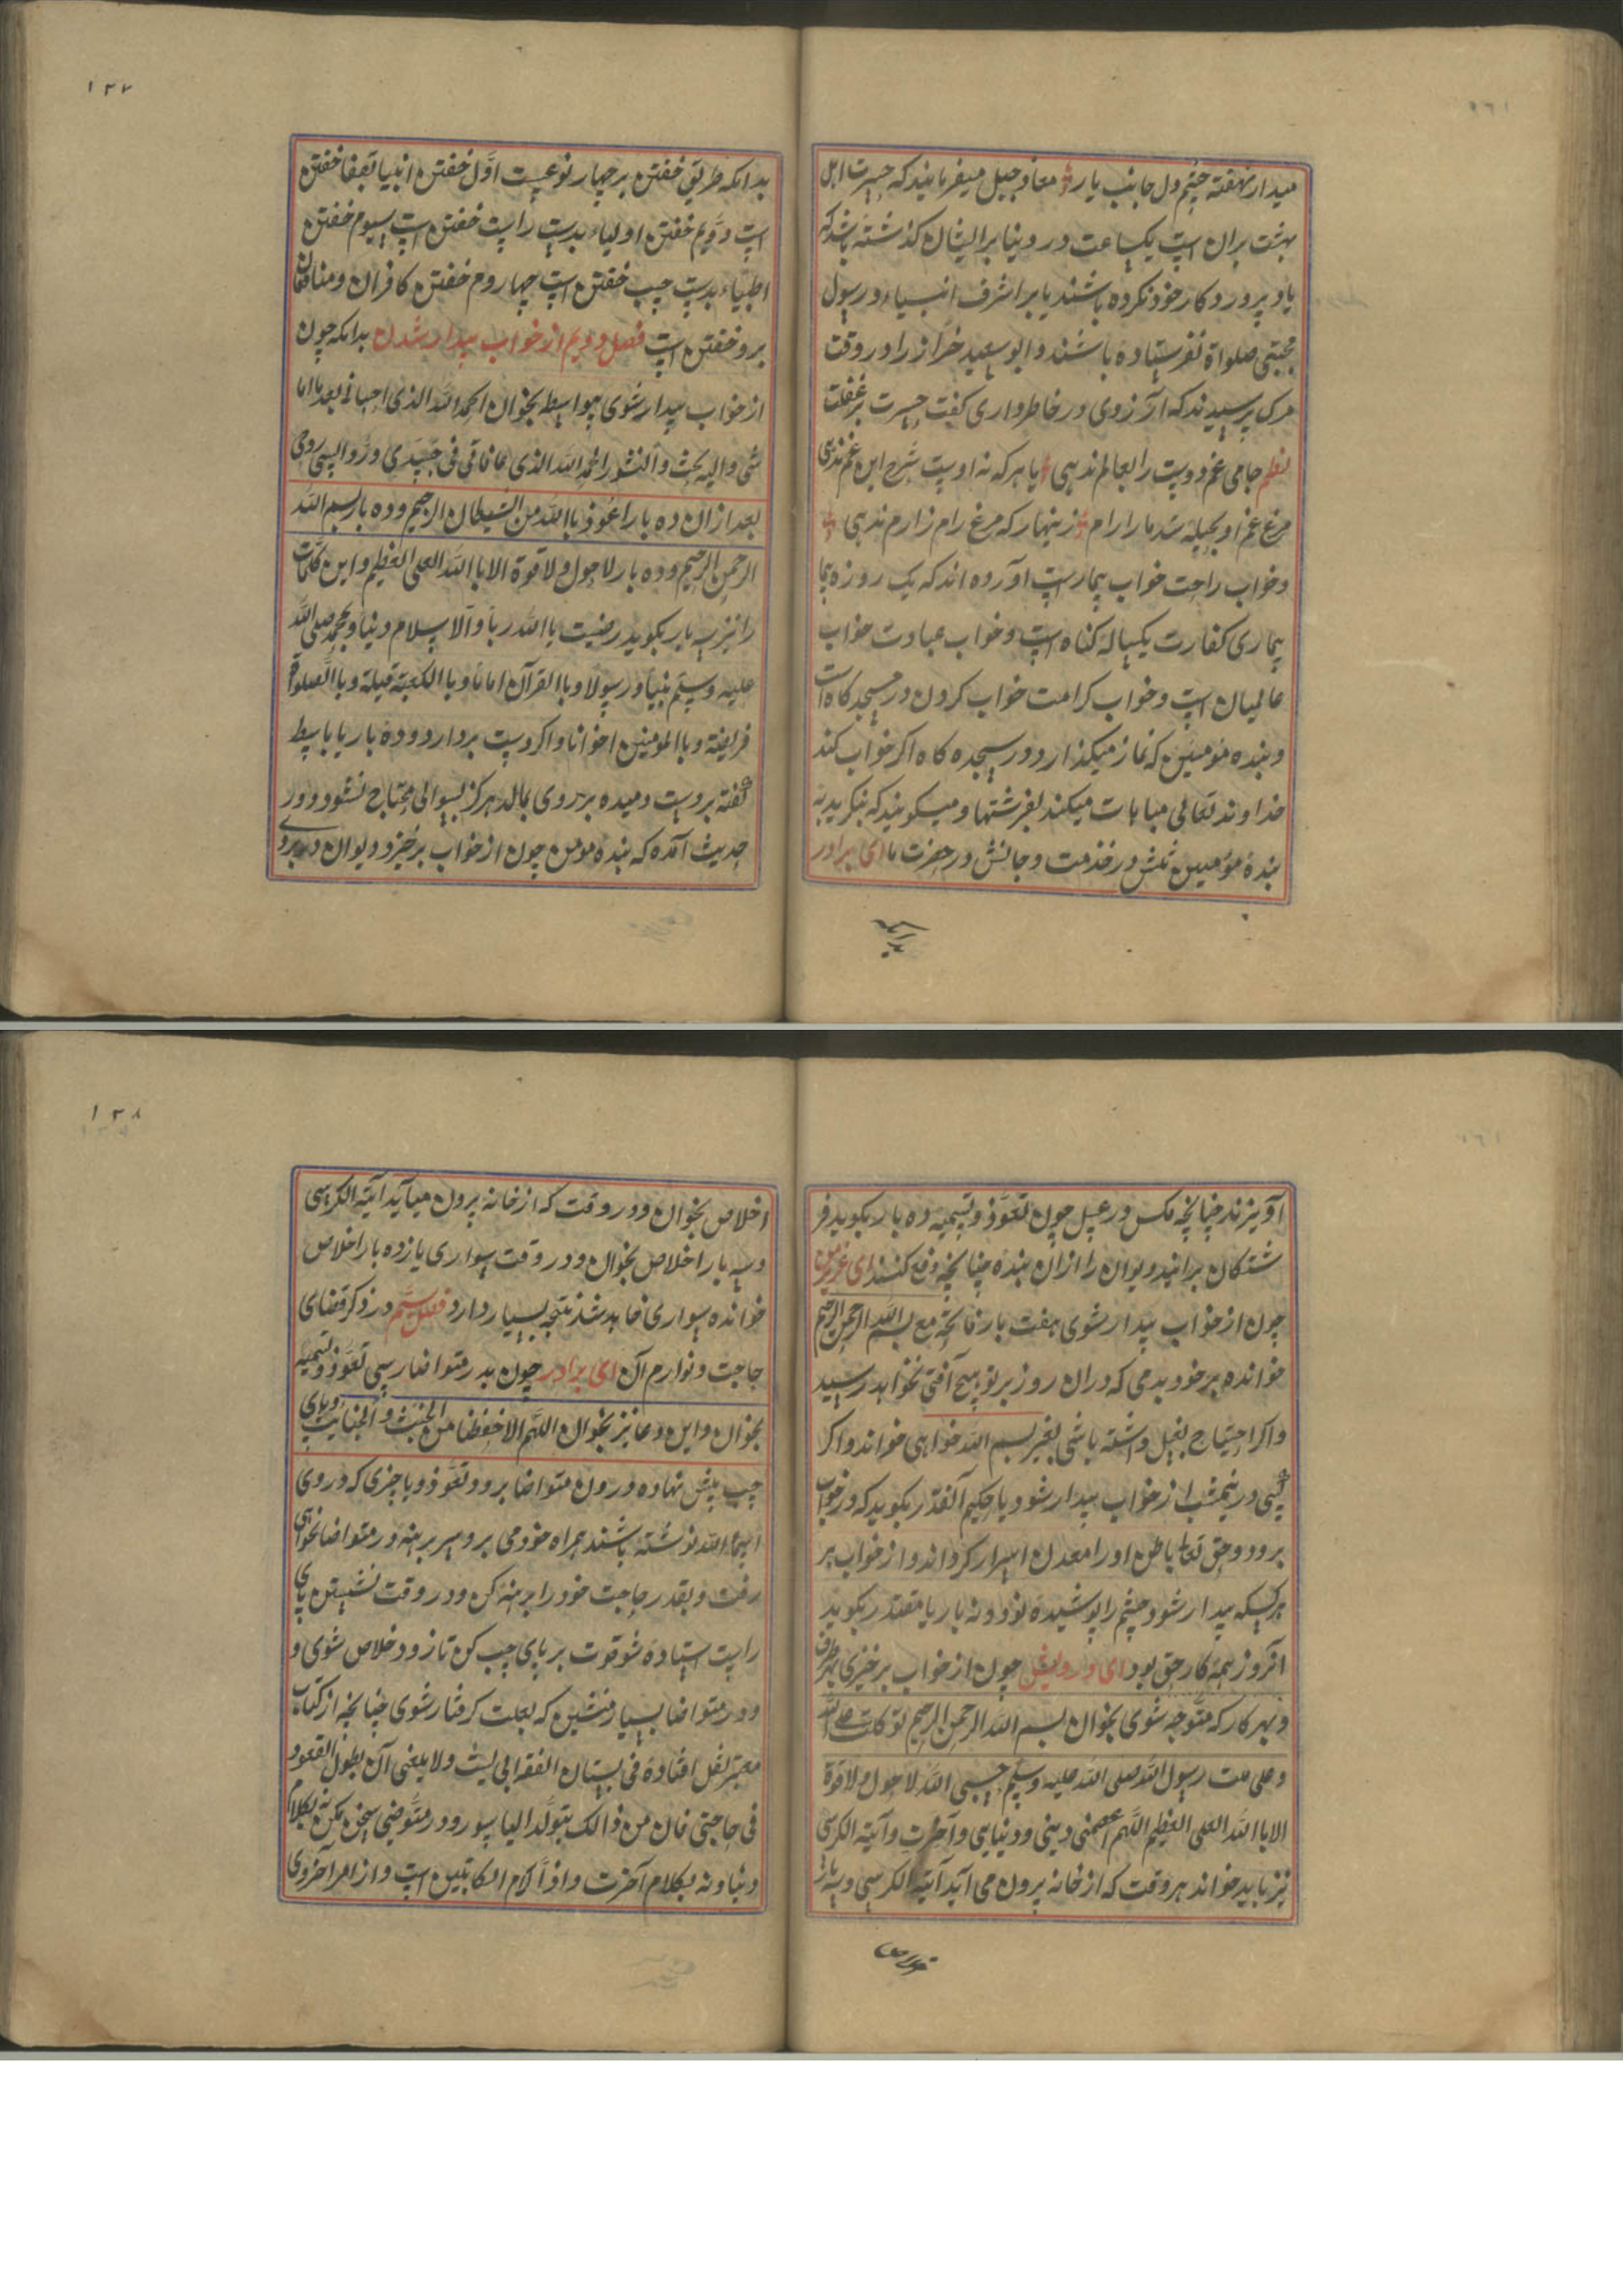 میدار نهفته چشم دل جانب یار معاذ جبل میفرمایند که حسرت اهل
بهشت بران است یکساعت در دنیا بر ایشان گذشته باشد که
یاد پروردکار خود نکرده باشند یا بر اشرف انبیاء و رسول
مجتبی صلواة نفرستاده باشند و ابو سعید خراز را در وقت
مرک پرسیدند که آرزوی در خاطر داری کفت حسرت بر غفلت
نظم جامی غم دوست را بعالم ندهی با هر که نه اوست شرح این غم ندهی
مرغ غم او بحیله شد ما را رام زینهار که مرغ رام زارم ندهی
و خواب راحت خواب بیمارست آورده اند که یک روزه
بیماری کفارت یکساله کناه است و خواب عبادت خواب
عالمیان است و خواب کرامت خواب کردن در سجدکاه است
و بنده مؤمین که نماز میکذارد در سجده کاه اکر خواب کند
خداوند تعالی مباهات میکند بفرشتها و میکویند که بنکرید به
بنده مؤمین تنش در خدمت و جانش در حضرت ما ای برادر
۱۳۷
بدانکه طریق خفتن بر چهار نوعیت اول خفتن انبیا بقفا خفتن
است دویم خفتن اولیاء بدست راست خفتن است سیوم خفتن
اطبیاء بدست چپ خفتن است چهاروم خفتن کافران و منافقان
برو خفتن است فصل دویم از خواب بیدار شدن بدانکه چون
از خواب بیدار شوی بخوان الحمد الله الذی احیانی بعد ما اما
تنی و الیه بعث و النشور الحمد الله الذی عافانی فی جسدی و رد الیی روحی
بعد ازان ده بار اعوذ باالله من الشیطان الرجیم و ده بار بسم الله
الرحمن الرحیم و ده بار لا حول و لا قوة الا باالله العلی العظیم و این کلمات
را نیز سه بار بکوید رضیت باالله ربا و الاسلام دینا و بمحمد صلی الله
علیه و سلم نبیا و رسولا و باالقرآن اماما و باالکعبة قبلة و باالصلوة
فریضة و باالمومنین اخوانا و اکر دست بردارد و ده بار یا باسط
کفته بر دست دمیده بر روی بمالد هرکز بسوالی محتاج نشود و در
حدیث آمده که بنده مومن چون از خواب برخیزد دیوان
آویزند چنانچه مکس در عسل چون تعوذ و تسمیه ده بار بکوید فر
شتکان برانید دیوان را ازان بنده چنانچه دفع کنند ای عزیز من
چون از خواب بیدار شوی هفت بار فاتحه مع بسم الله الرحمن الرحیم
خوانده بر خود بدمی که دران روز بر تو هیچ آفتی نخواهد رسید
و اکر احتیاج بغسل داشته باشی بغیر بسم الله خواهی خواند و اکر
کسی در نیمشب از خواب بیدار شود یا حکیم القدر بکوید که در خواب
برود و حق تعا باطن او را معدن اسرار کرداند و از خواب
هر کسیکه بیدار شود چشم را پوشیده نود و نه بار یا مقتدر بکوید
آنروز همه کار حق بود ای درویش چون از خواب برخیزی بهر طرف
و بهر کار که متوجه شوی بخوان بسم الله الرحمن الرحیم توکلت علی الله
و علی ملت رسول الله صلی الله علیه و سلم حسبی الله لا حول و لا قوة
الا باالله العلی العظیم اللهم اعصمنی دینی و دنیایی و آخرت و آیة الکرسی
نیز باید خواند هر وقت که از خانه برون می آید آیة الکرسی و سه بار
۱۳۸
اخلاص بخوان و در وقت که از خانه برون میآید آیة الکرسی
و سه بار اخلاص بخوان و در وقت سواری یازده بار اخلاص
خوانده سواری خاهد شد نتجه بسیار دارد فصل سیم در ذکر قضای
حاجت و لوازم آن ای برادر چون بدر متواضا رسی تعوذ و تسمیه
بخوان و این دعا نیز بخوان اللهم الاحفظنا من الخبث و الخبایث و پای
چپ پیش نهاده درون متواضا برو و تعوذ و یا چیزی که در وی
اسماء الله نوشته باشند همراه خود می برو سر برهنه در متواضا نخواهی
رفت و بقدر حاجت خود را برهنه کن و در وقت نشیستن پای
راست استاده شو قوت بر پای چپ کن تا زود خلاص شوی و
و در متواضا بسیار منشین که بعلت کرفتار شوی چنانچه از کتاب
معتبر نقل افتاده فی بستان الفقه ابی لیث و لا یبغی آن بطول القعود
فی حاجتی فان من ذالک یتولد الیاسور و در متوضی سخن مکن نه بکلام
دنیا و نه بکلام آخرت و اذا کرام الکاتبین است و از امر آخروی